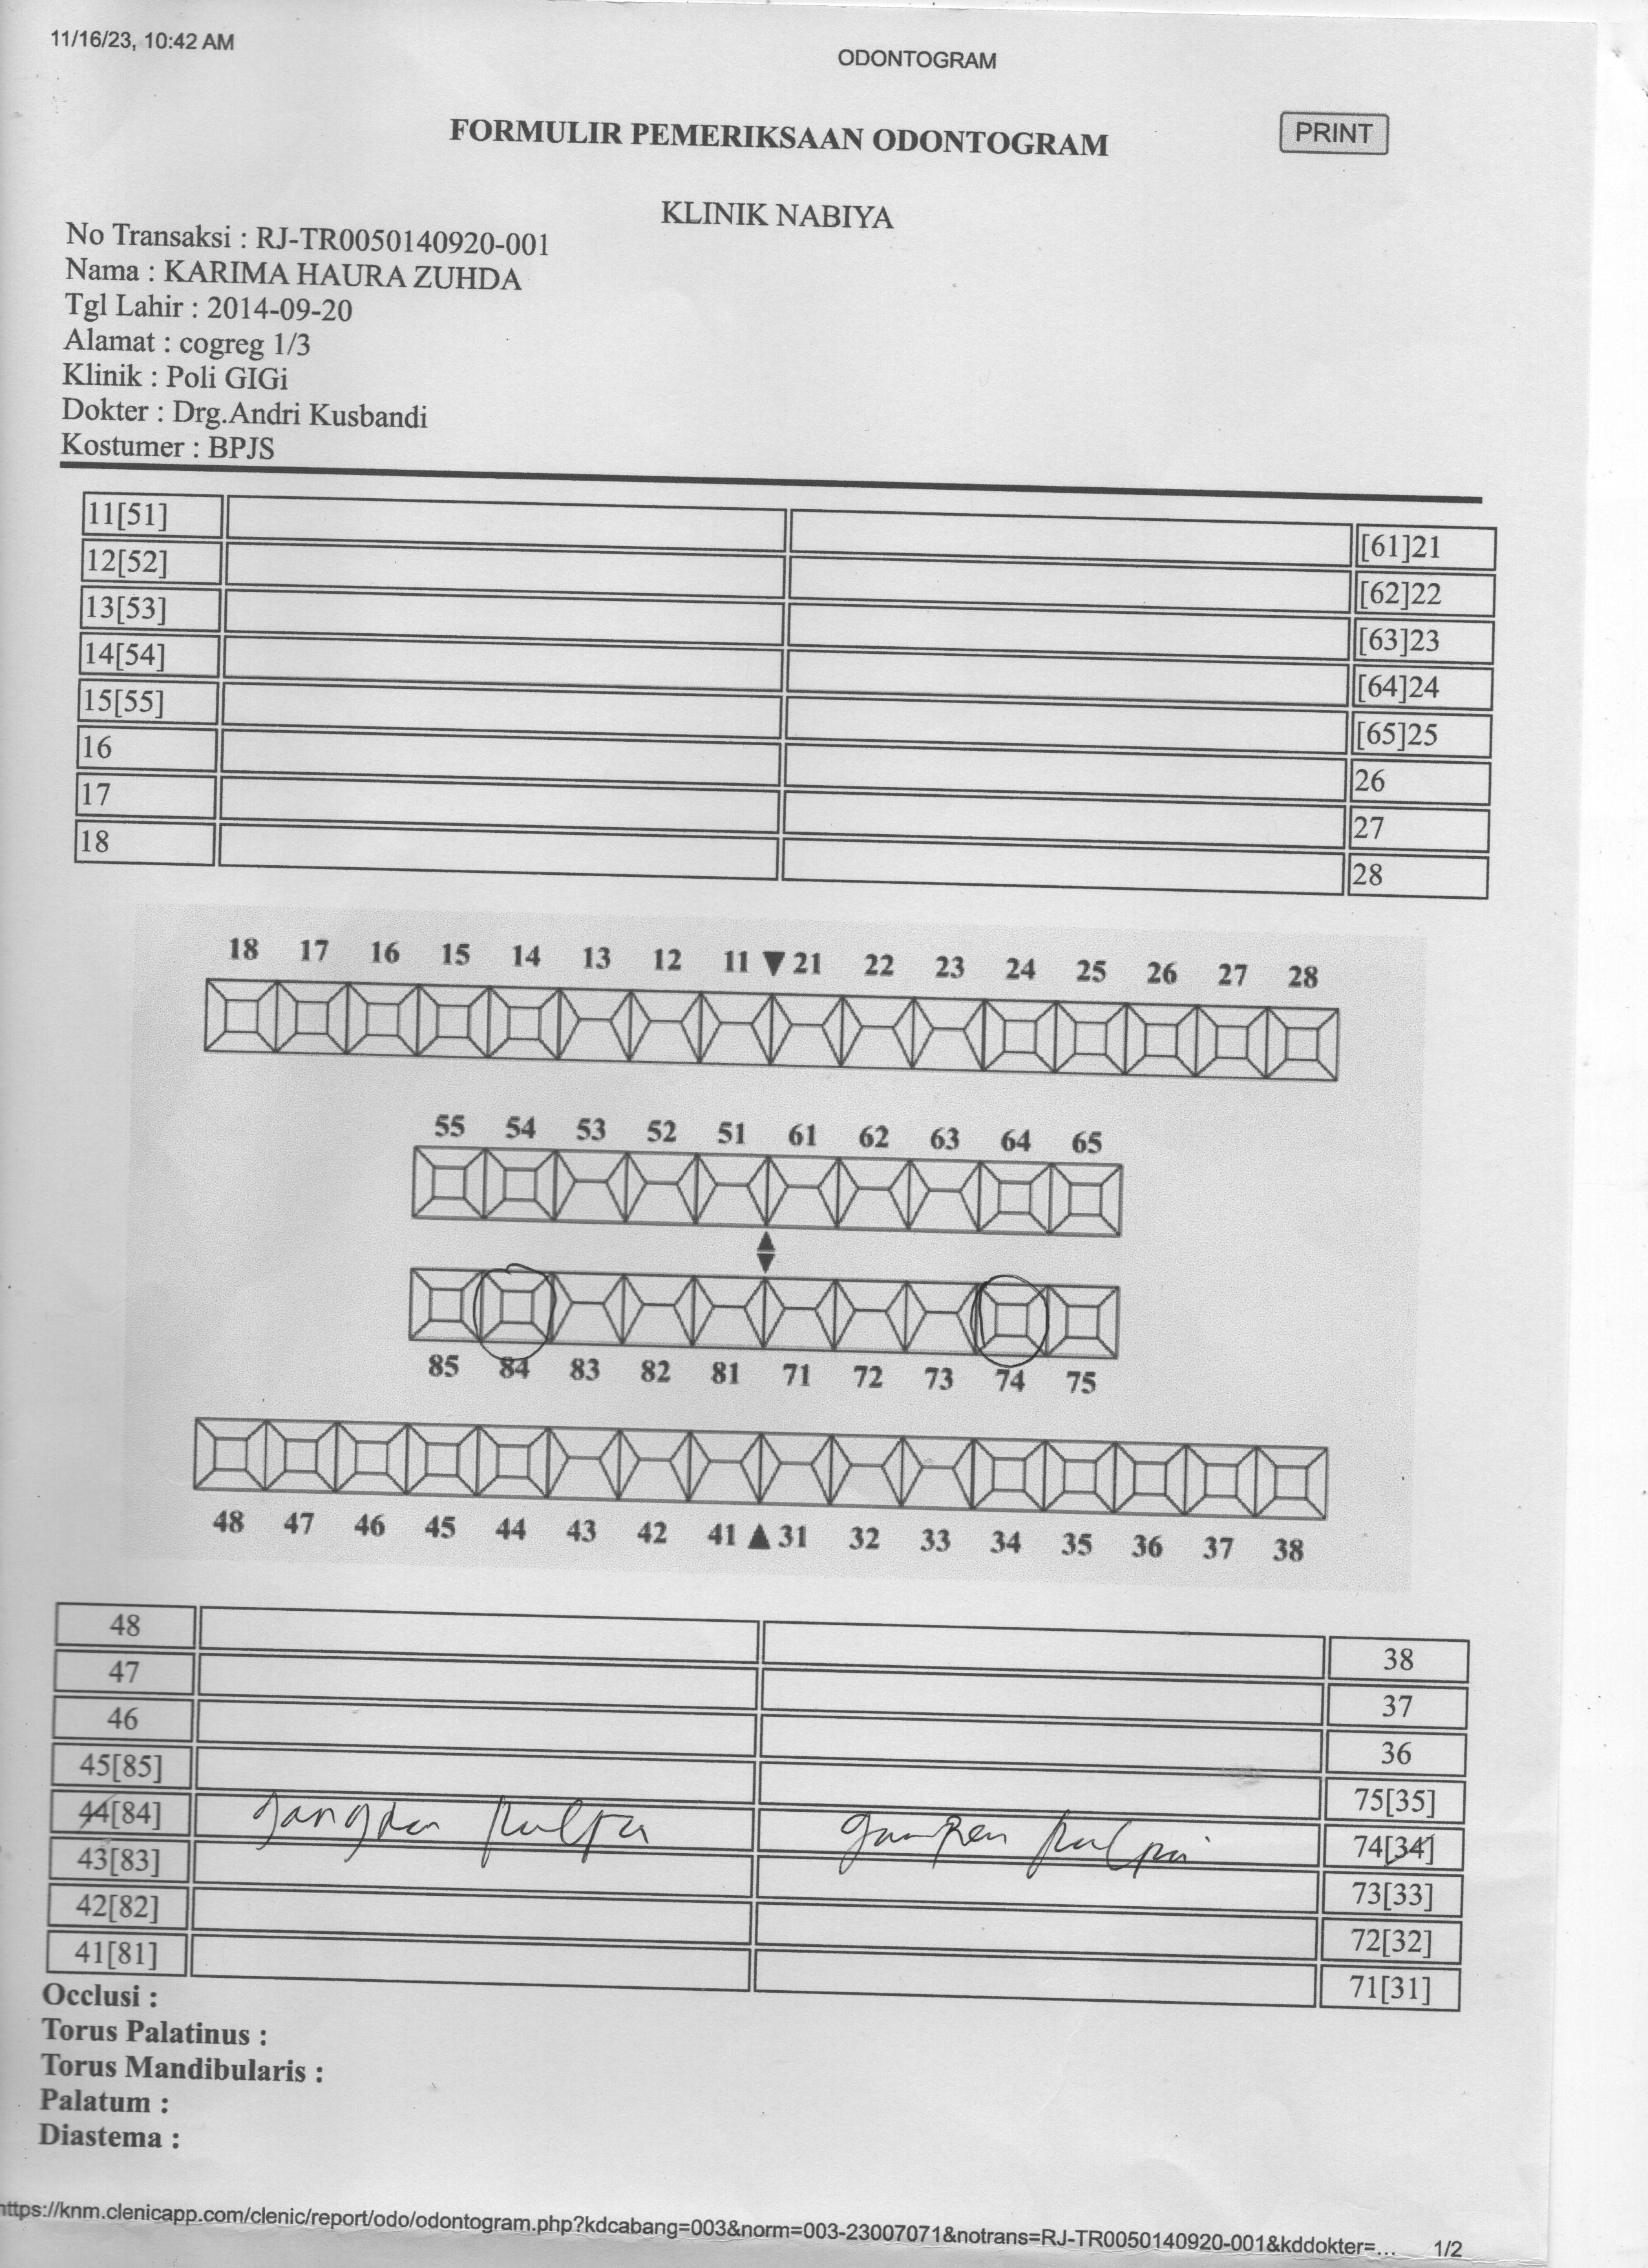 11/16/23, 10:42 AM
ODONTOGRAM
FORMULIR PEMERIKSAAN ODONTOGRAM
PRINT
KLINIK NABIYA
No Transaksi : RJ-TR0050140920-001
Nama : KARIMA HAURA ZUHDA
Tgl Lahir : 2014-09-20
Alamat : cogreg 1/3
Klinik : Poli GIGi
Dokter : Drg.Andri Kusbandi
Kostumer : BPJS
11[51] [61]21
12[52] [62]22
13[53] [63]23
14[54] [64]24
15[55] [65]25
16 26
17 27
18 28
18 17 16 15 14 13 12 11 21 22 23 24 25 26 27 28
55 54 53 52 51 61 62 63 64 65
85 84 83 82 81 71 72 73 74 75
48 47 46 45 44 43 42 41 31 32 33 34 35 36 37 38
48 38
47 37
46 36
45[85] 75[35]
44[84] pulpa pulpa 74[34]
43[83] 73[33]
42[82] 72[32]
41[81] 71[31]
Occlusi :
Torus Palatinus :
Torus Mandibularis :
Palatum :
Diastema :
https://knm.clenicapp.com/clenic/report/odo/odontogram.php?kdcabang=003&norm=003-23007071&notrans=RJ-TR0050140920-001&kddokter=... 1/2